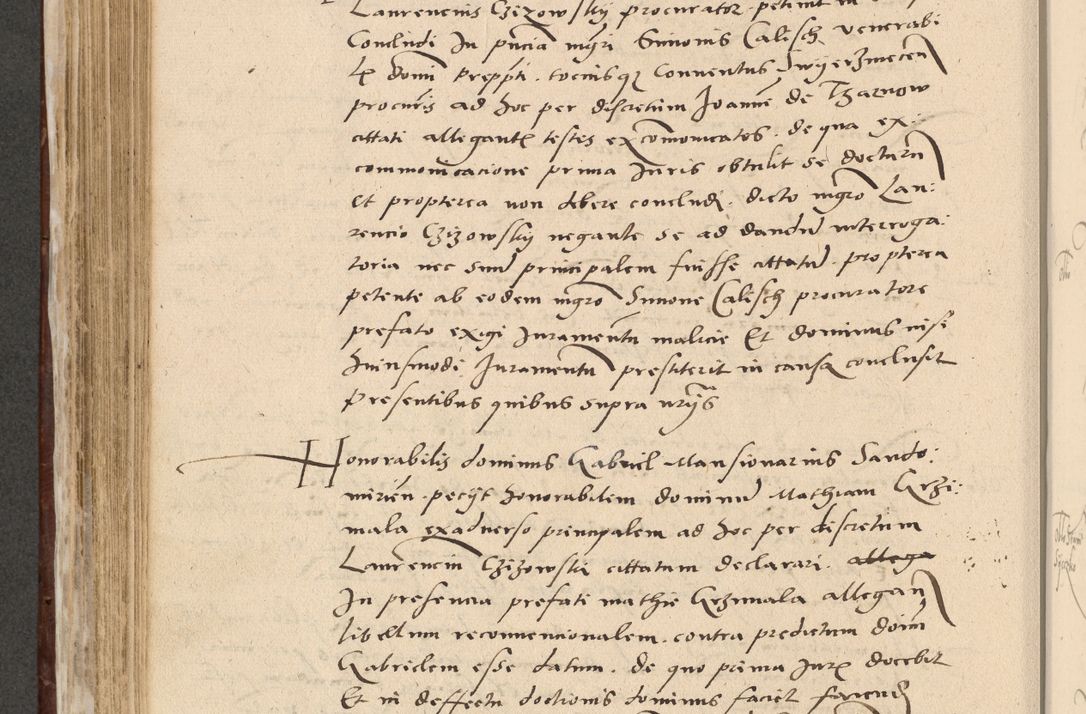 Laurencius Czizowsky procurator petiint in
Concludi In pncia mgri Simonis Calisch venerabi
lis domi Preppti. tociusqz Conventus Zwyerzinecen
procuris ad hoc per discretum Joanne de Tharnow
cittati allegantis testes excomonicatos. de qua ex:
commonicacione prima Juris obtulit se docturu
et propterea non debere concludi. dicto mgro Lau:
rencio Czizowsky negante se ad dandu interroga:
toria nec suu principalem fuisse cittatu. propterea
petente ab eodem mgro Simone Calisch procuratore
prefato exigi Juramentu malicie Et dominus nisi
huiusmodi Juramentu prestiterit in causa conclusit
Presentibus quibus supra
Honorabilis dominus Gabriel Mansionarius Sando:
mirien. pecijt honorabilem dominu Mathiam Grzi:
mala exadverso principalem ad hoc per discretum
Laurencium Czizowski cittatum declarari. allega
In presencia prefati mathie Grzimala allegan
libellum reconvencionalem. contra predictum doim
Gabrielem esse datum. de quo prima Juris docebit
Et in deffectu doctionis dominus faciet faciend